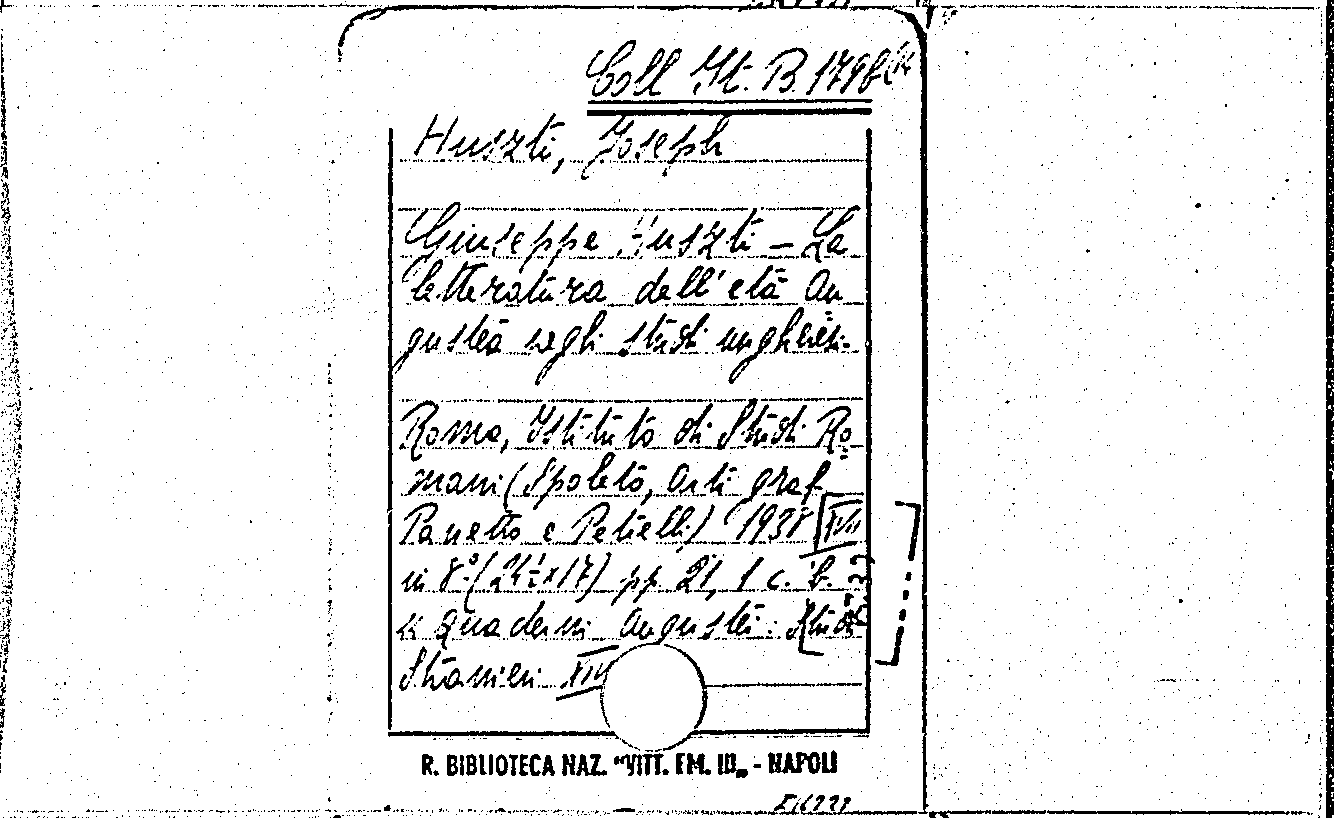 Coll. It. B. 1798 (14
Huszti, Joseph
Giuseppe Huszti – La
letteratura dell'età Au
gustea negli studi ungheresi.
Roma, Istituto di Studi Ro
mani (Spoleto, Arti graf.
Panetto e Petrelli) 1938 [XVI
in 8.° (24½×17) pp. 21, 1 c. b.
Quaderni Augustei: Studi
Stranieri XIII
R. BIBLIOTECA NAZ. "VITT. EM. III„ - NAPOLI